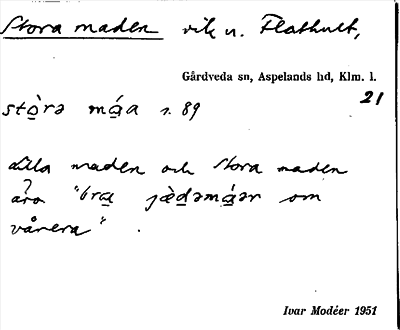 Stora maden vik n. Flathult,
Gårdveda sn, Aspelands hd, Klm. l.
21
stò̱rə má̱a s. 89
Lilla maden och Stora maden
äro "bra̱ jæ̀ḏəmá̱ər om
vårera".
Ivar Modéer 1951